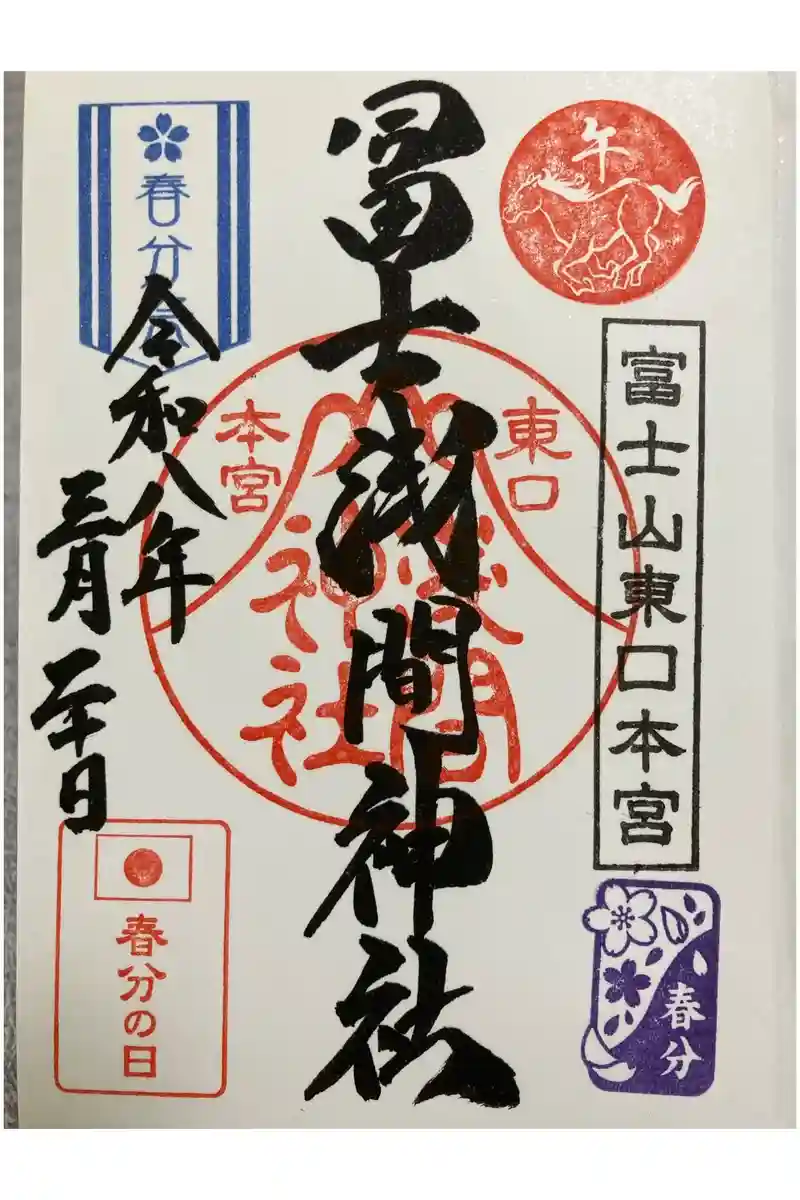 午
富士山東口本宮
春分
冨士浅間神社
東口
本宮
浅間
神社
春分
令和八年
三月二十日
春分の日